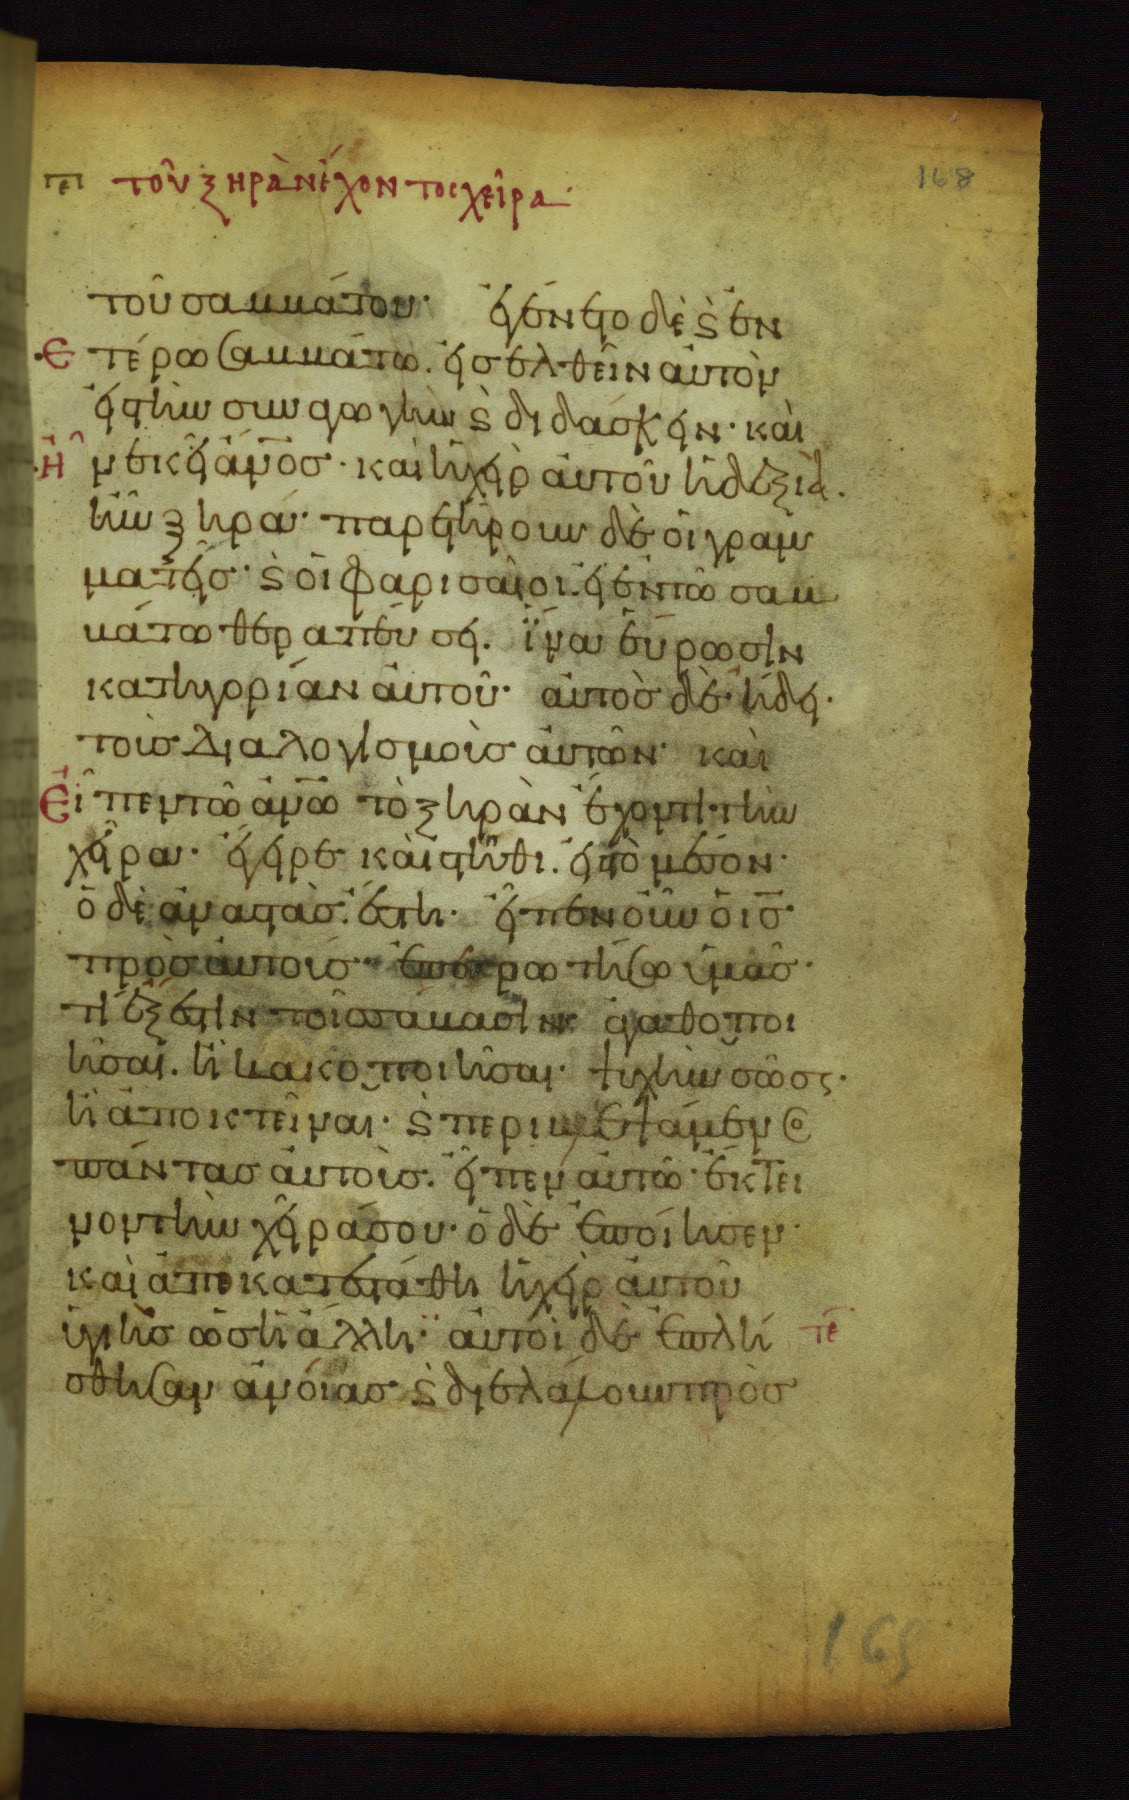 πει τοῦ ξηρὰν ἔχοντος χεῖρα· 168
τοῦ σαββάτου· ἐγένετο δὲ ϗ ἐν
ἑτέρω σαββάτω. εἰσελθεῖν αὐτὸν
εἰς τὴν συναγωγὴν ϗ διδάσκειν· καὶ
ἦν ἐκεῖ ἄν̅ο̅σ· καὶ ἡ χεὶρ αὐτοῦ ἡ δεξιὰ.
ἦν ξηρά· παρετήρουν δὲ οἱ γραμ
ματεῖς· ϗ οἱ φαρισαῖοι. εἰ ἐν τῶ σαβ
βάτω θεραπεύσει. ἵνα εὕρωσιν
κατηγορίαν αὐτοῦ· αὐτὸς δὲ ἤδει·
τοὺς διαλογισμοὺς αὐτῶν· καὶ
εἶπεν τῶ ἀν̅ω̅ τὸ ξηρὰν ἔχοντι τὴν
χεῖρα· ἔγειρε καὶ στῆθι. εἰς τὸ μέσον·
ὁ δὲ ἀναστὰς. ἔστη· εἶπεν οὖν ὁ ι̅σ̅
πρὸς αὐτούς· ἐπερωτήσω ὑμᾶς·
τί ἔξεστιν τοῖς σάβασιν ἀγαθοποι
ῆσαι. ἢ κακοποιῆσαι· ψυχὴν σῶσαι·
ἢ ἀποκτεῖναι· ϗ περιβλεψάμενος
πάντας αὐτοὺς. εἶπεν αὐτῶ· ἔκτει
νον τὴν χεῖρά σου· ὁ δὲ ἐποίησεν·
καὶ ἀποκατεστάθη ἡ χεὶρ αὐτοῦ
ὑγιὴς ὡς ἡ ἄλλη· αὐτοὶ δὲ ἐπλή τε
σθησαν ἀνοίας ϗ διελάλουν πρὸς
165